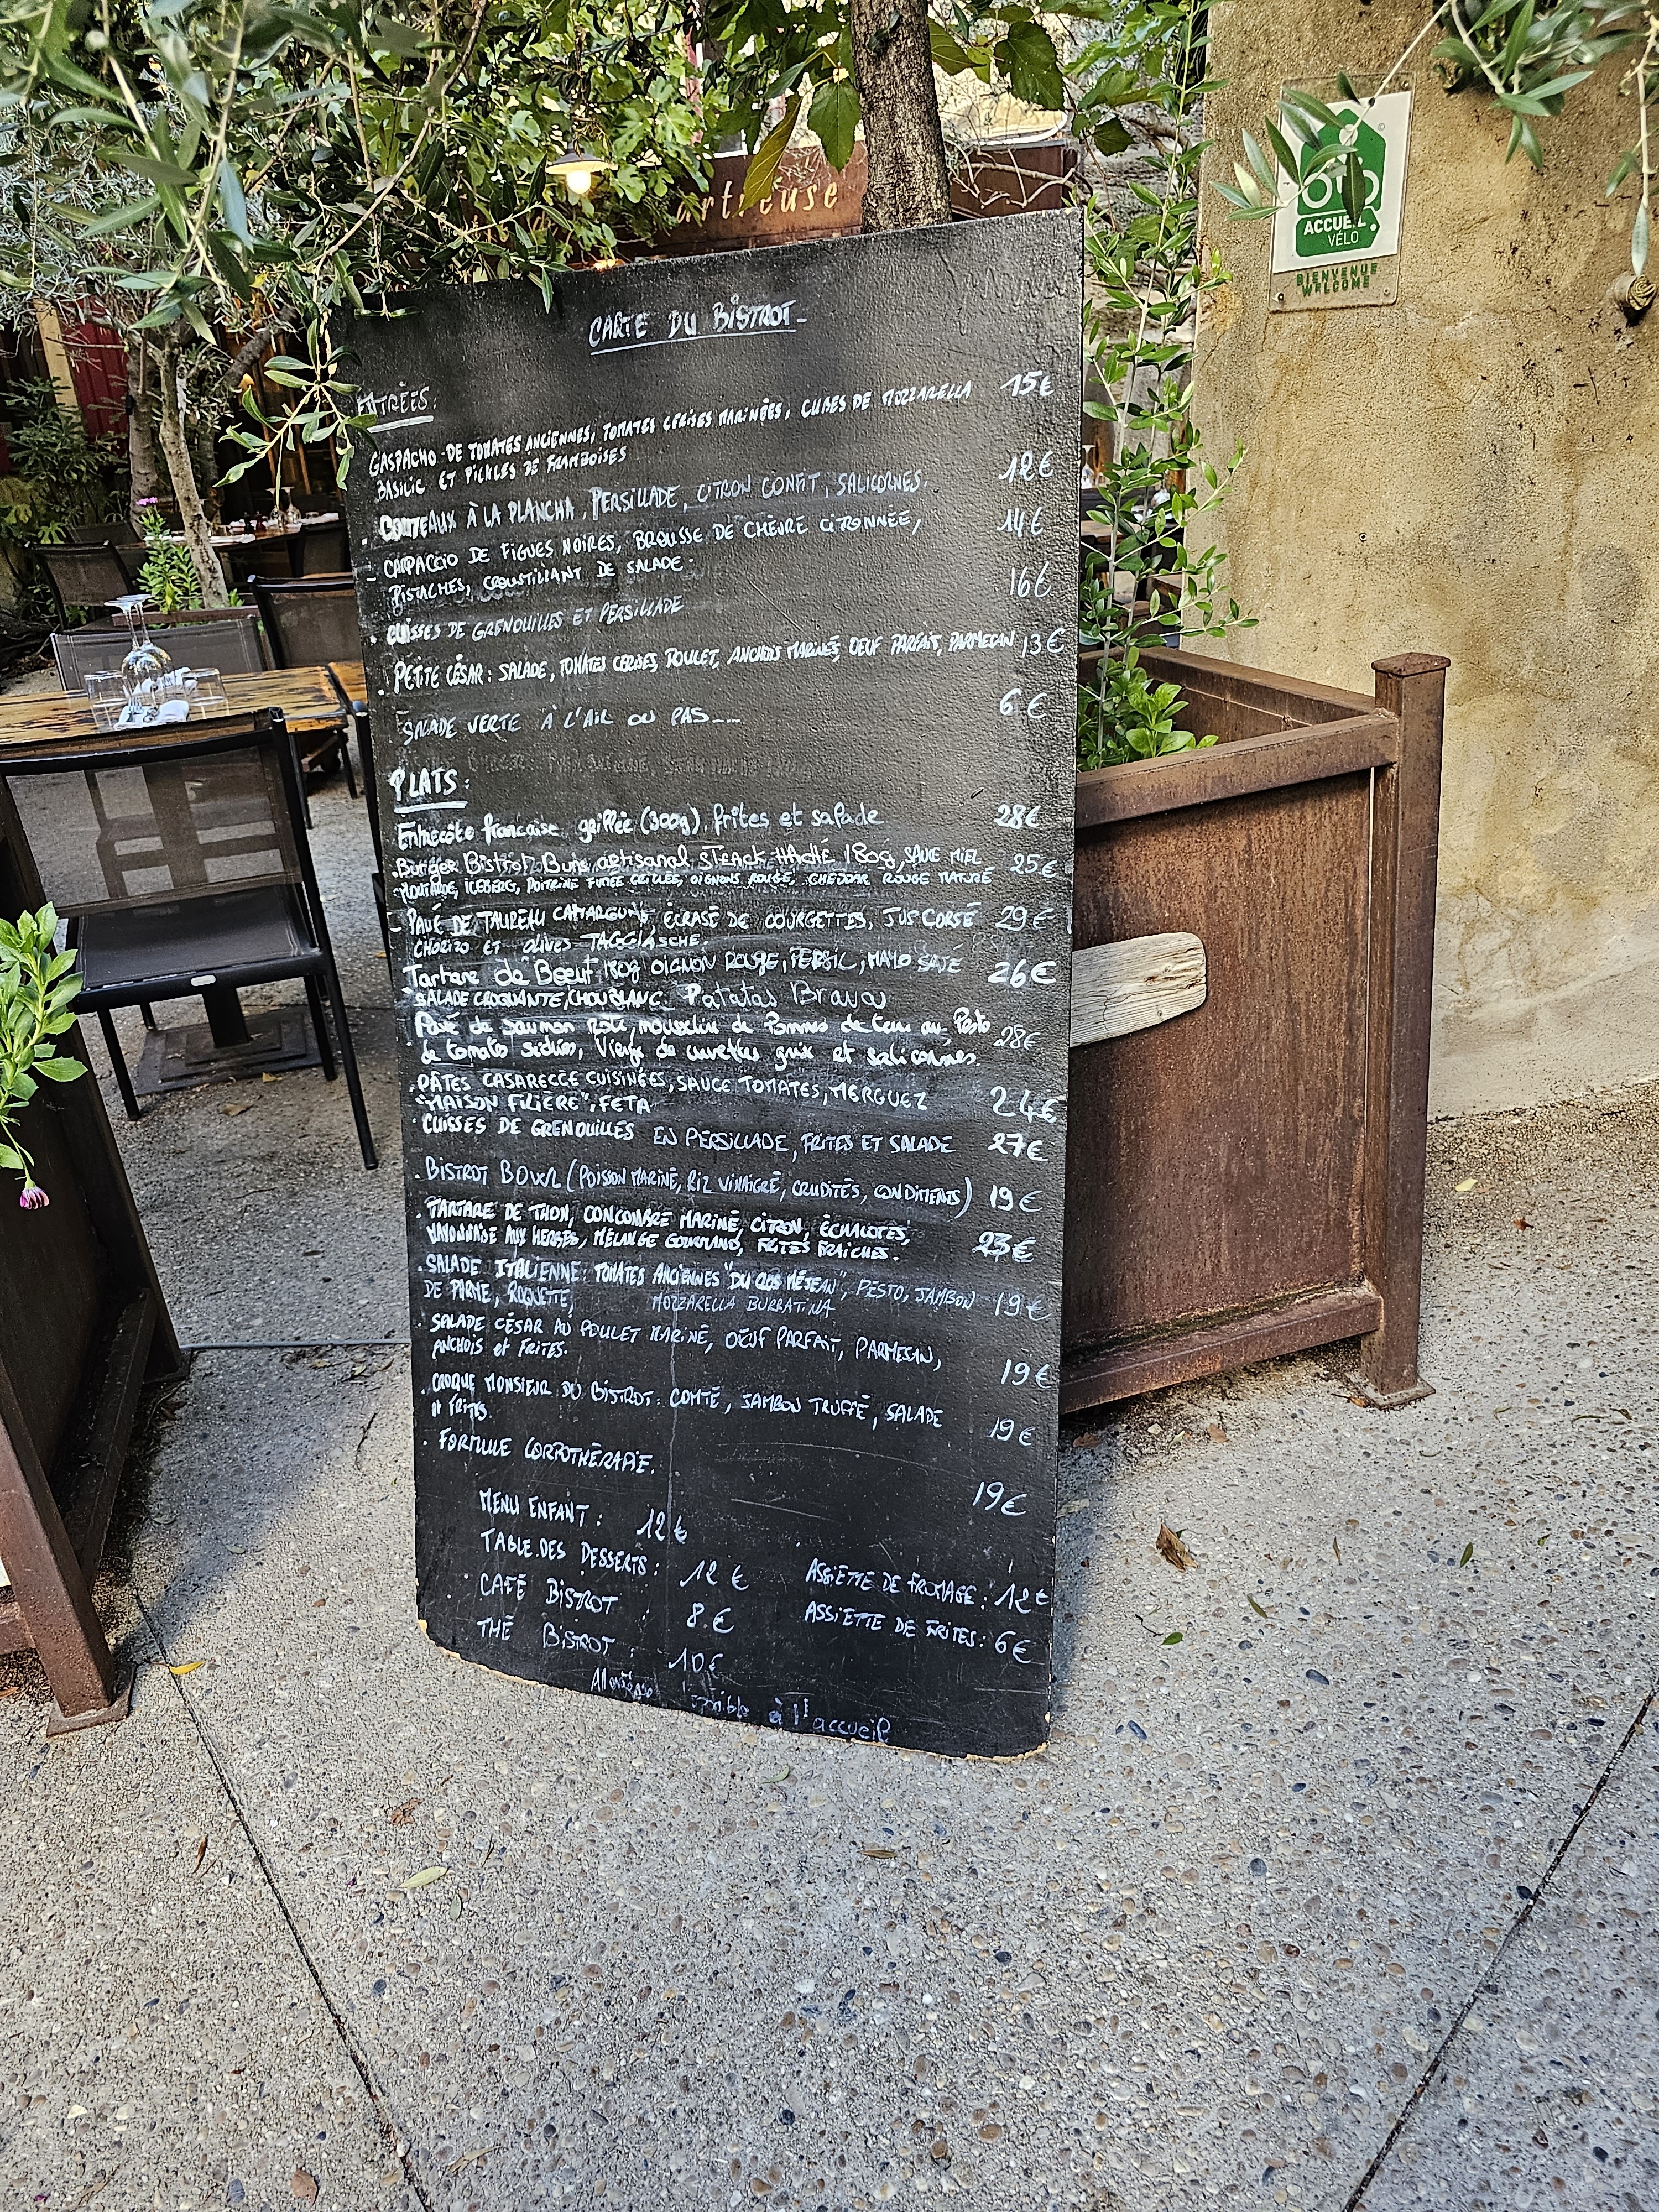 artreuse
ACCUEIL
VÉLO
BIENVENUE
WELCOME
CARTE DU BISTROT
ENTRÉES:
GASPACHO DE TOMATES ANCIENNES, TOMATES CERISES MARINÉES, CUBES DE MOZZARELLA 15€
BASILIC ET PICKLES DE FRAMBOISES
COUTEAUX À LA PLANCHA, PERSILLADE, CITRON CONFIT, SALICORNES. 12€
- CARPACCIO DE FIGUES NOIRES, BROUSSE DE CHÈVRE CITRONNÉE, 14€
PISTACHES, CROUSTILLANT DE SALADE.
. CUISSES DE GRENOUILLES ET PERSILLADE 16€
. PETITE CÉSAR: SALADE, TOMATES CERISES, POULET, ANCHOIS MARINÉS, OEUF PARFAIT, PARMESAN 13€
SALADE VERTE À L'AIL OU PAS.... 6€
PLATS:
Entrecôte française grillée (300g). frites et salade 28€
. Burger Bistrot Buns artisanal STEACK HACHÉ 180g, SAUCE MIEL 25€
MOUTARDE, ICEBERG, POITRINE FUMÉE GRILLÉE, OIGNONS ROUGE, CHEDDAR ROUGE MATURÉ
- PAVÉ DE TAUREAU CAMARGUAIS, ÉCRASÉ DE COURGETTES, JUS CORSÉ 29€
CHORIZO ET OLIVES TAGGIASCHE.
Tartare de Boeuf 180g OIGNON ROUGE, PERSIL, MAYO SATÉ 26€
SALADE CROQUANTE/CHOU BLANC. Patatas Bravas
. Pavé de saumon roti, mousseline de Pommes de terre au Pesto 28€
de tomates séchées, Vierge de crevettes grises et salicornes.
. PÂTES CASARECCE CUISINÉES, SAUCE TOMATES, MERGUEZ 24€
"MAISON FILIERE", FETA
. CUISSES DE GRENOUILLES EN PERSILLADE, FRITES ET SALADE 27€
. BISTROT BOWL (POISSON MARINÉ, RIZ VINAIGRÉ, CRUDITÉS, CONDIMENTS) 19€
. TARTARE DE THON, CONCOMBRE MARINÉ, CITRON, ÉCHALOTES, 23€
MAYONNAISE AUX HERBES, MÉLANGE GOURMAND, FRITES FRAICHES.
. SALADE ITALIENNE: TOMATES ANCIENNES "DU CLOS MÉJEAN", PESTO, JAMBON 19€
DE PARME, ROQUETTE, MOZZARELLA BURRATINA
. SALADE CÉSAR AU POULET MARINÉ, OEUF PARFAIT, PARMESAN, 19€
ANCHOIS et FRITES.
. CROQUE MONSIEUR DU BISTROT: COMTÉ, JAMBON TRUFFÉ, SALADE 19€
et FRITES.
. FORMULE CORPOTHÉRAPIE. 19€
MENU ENFANT: 12€
TABLE DES DESSERTS: 12€ ASSIETTE DE FROMAGE: 12€
CAFÉ BISTROT : 8€ ASSIETTE DE FRITES: 6€
THÉ BISTROT : 10€
à l'accueil